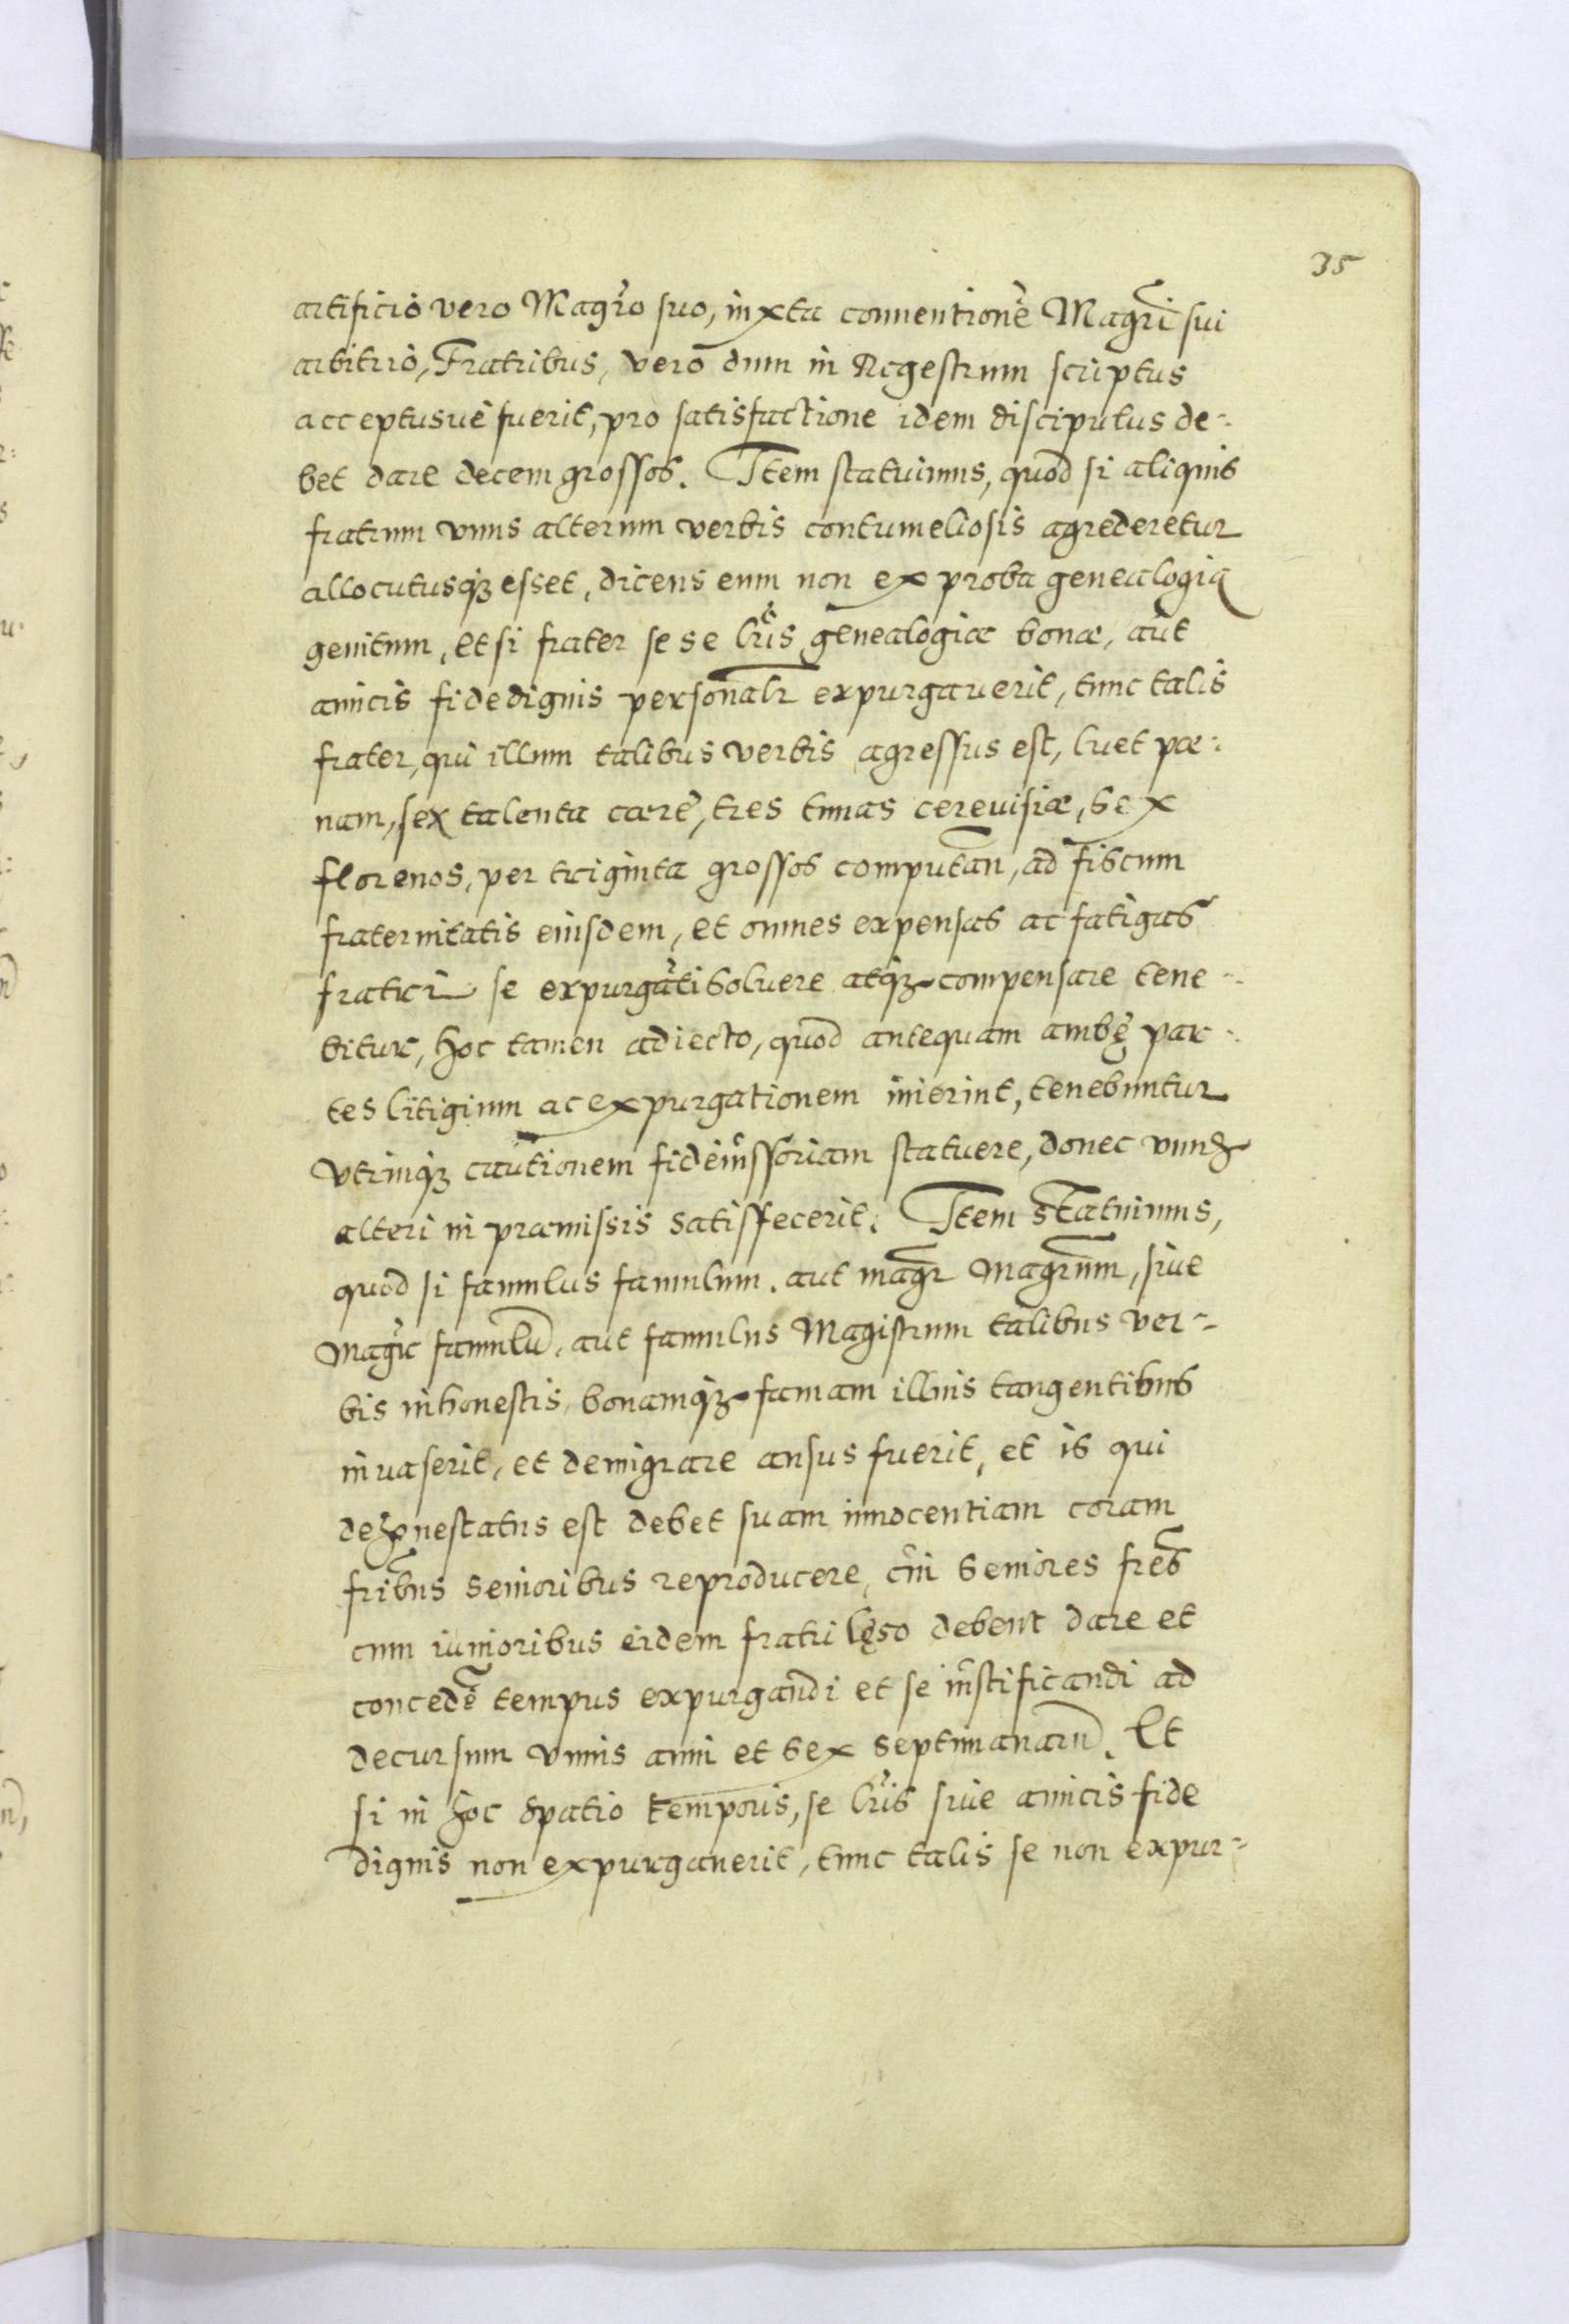 35
artificio vero Magr̃o suo, iuxta conuentionẽ Magr̃i sui
arbitrio, Fratribus, vero dum in Regestrum scriptus
acceptusue fuerit, pro satisfactione idem discipulus de-
bet dare decem grossos. Item statuimus, quod si aliquis
fratrum vnus alterum verbis contumeliosis agrederetur
allocutusqꝫ esset, dicens eum non ex proba genealogia
genitum, et si frater se se lr̃is genealogiæ bonæ, aut
amicis fidedignis personalr̃ expurgauerit, tunc talis
frater, qui illum talibus verbis agressus est, luet pæ-
nam, sex talenta ceræ, tres tunas cereuisiæ, sex
florenos, per triginta grossos computan̄, ad fiscum
fraternitatis eiusdem, et omnes expensas ac fatigas
fratri se expurgãti soluere atqꝫ compensare tene-
bitur, hoc tamen adiecto, quod antequam ambę par-
tes litigium ac expurgationem inierint, tenebuntur
vtrinqꝫ cautionem fideiussoriam statuere, donec vnus
alteri in præmissis satisfecerit. Item statuimus,
quod si famulus famulum, aut magr̃ Magr̃um, siue
Magr̃ famulũ, aut famulus Magistrum talibus ver-
bis inhonestis, bonamqꝫ famam illius tangentibus
inuaserit, et denigrare ansus fuerit, et is qui
dehonestatus est debet suam innocentiam coram
fr̃ibus senioribus reproducere, cui seniores fr̃es
cum iunioribus eidem fratri lęso debent dare et
concedẽ tempus expurgandi et se iustificandi ad
decursum vnius anni et sex septimanarũ. Et
si in hoc spatio temporis, se lr̃is siue amicis fide
dignis non expurgauerit, tunc talis se non expur-